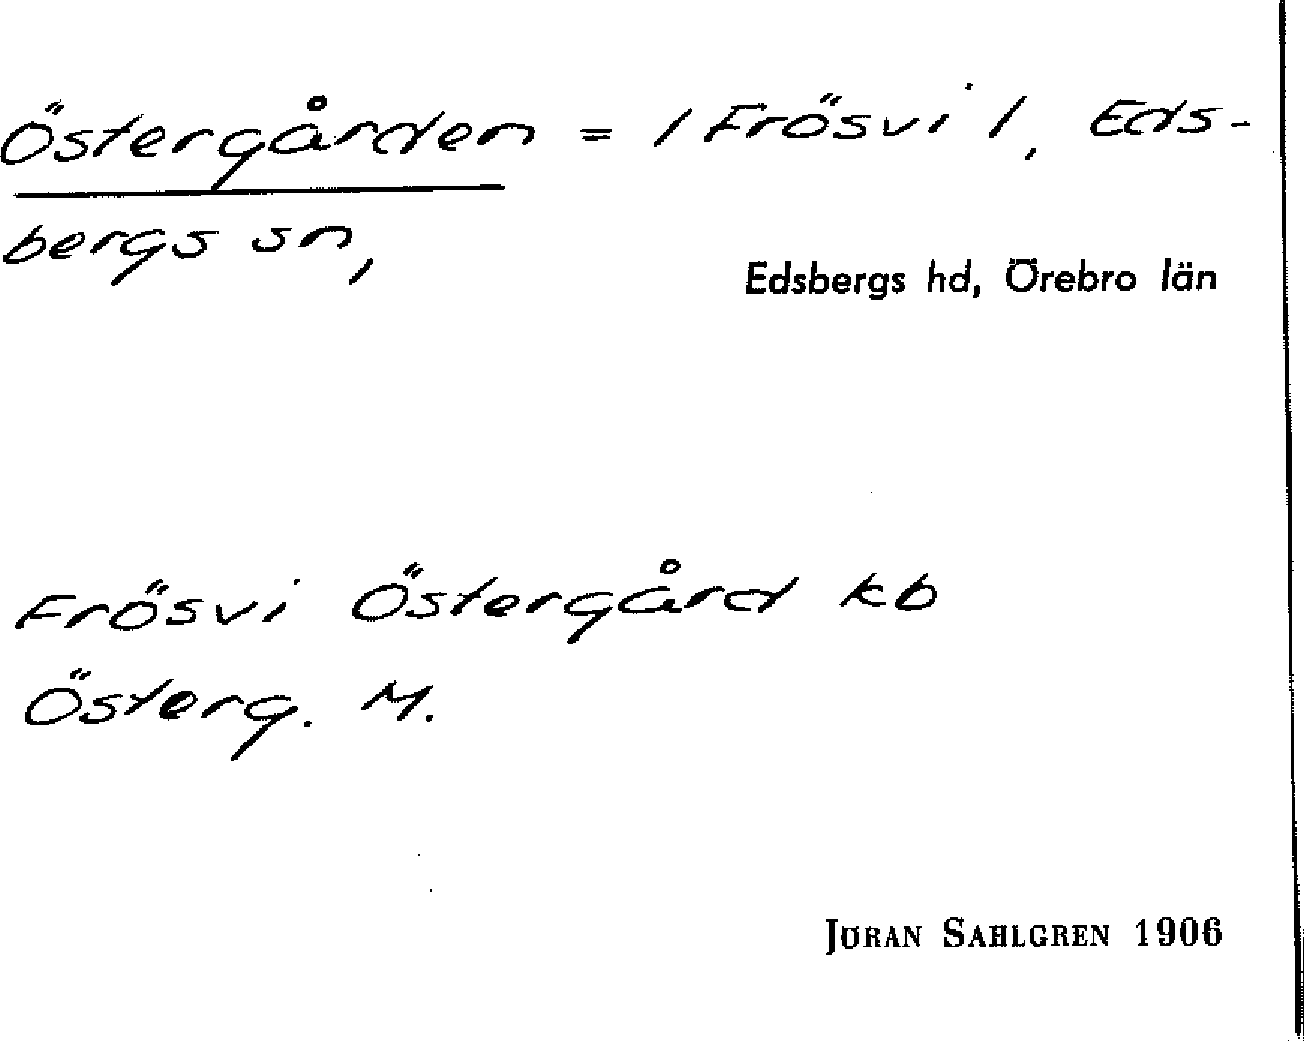 Östergården = / Frösvi /, Eds-
bergs sn,
Edsbergs hd, Örebro län
Frösvi Östergård kb
Österg. M.
JÖRAN SAHLGREN 1906